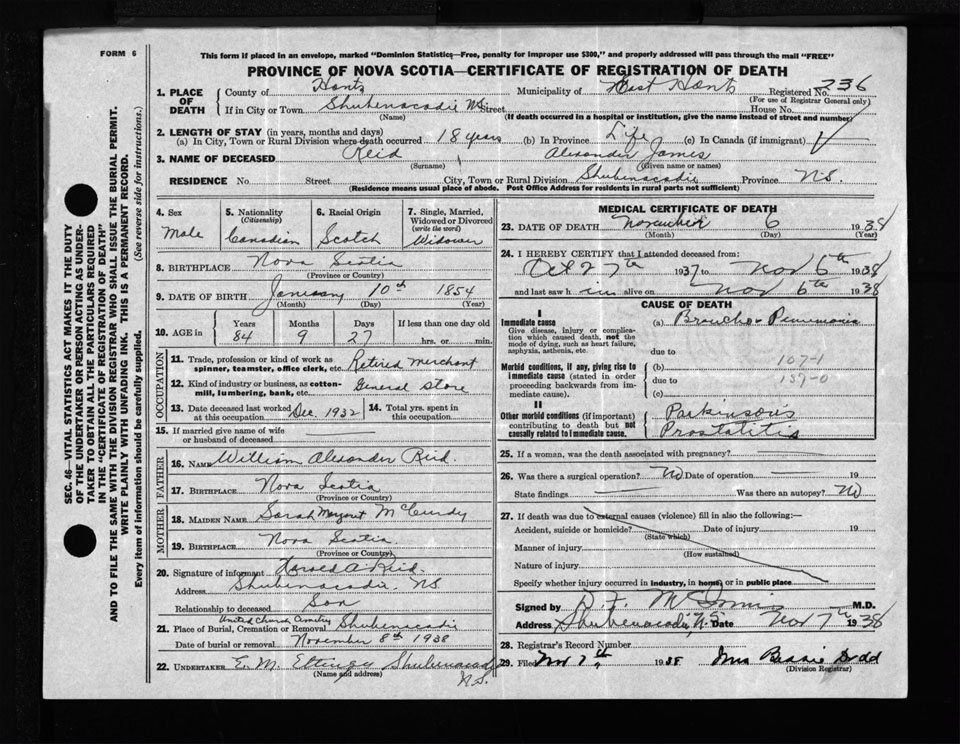 FORM 6
This form if placed in an envelope, marked "Dominion Statistics—Free, penalty for improper use $300," and properly addressed will pass through the mail "FREE"
PROVINCE OF NOVA SCOTIA—CERTIFICATE OF REGISTRATION OF DEATH
1. PLACE OF DEATH County of Hants Municipality of East Hants Registered No. 236
(For use of Registrar General only)
If in City or Town Shubenacadie NS. Street House No.
(Name) (If death occurred in a hospital or institution, give the name instead of street and number)
2. LENGTH OF STAY (in years, months and days)
(a) In City, Town or Rural Division where death occurred 18 years (b) In Province Life (c) In Canada (if immigrant)
3. NAME OF DECEASED Reid Alexander James
(Surname) (Given name or names)
RESIDENCE No Street City, Town or Rural Division Shubenacadie Province NS.
(Residence means usual place of abode. Post Office Address for residents in rural parts not sufficient)
SEC. 46—VITAL STATISTICS ACT MAKES IT THE DUTY
OF THE UNDERTAKER OR PERSON ACTING AS UNDER-
TAKER TO OBTAIN ALL THE PARTICULARS REQUIRED
IN THE "CERTIFICATE OF REGISTRATION OF DEATH"
AND TO FILE THE SAME WITH THE DIVISION REGISTRAR WHO SHALL ISSUE THE BURIAL PERMIT.
WRITE PLAINLY WITH UNFADING INK. THIS IS A PERMANENT RECORD.
Every item of information should be carefully supplied. (See reverse side for instructions.)
4. Sex
Male
5. Nationality
(Citizenship)
Canadian
6. Racial Origin
Scotch
7. Single, Married, Widowed or Divorced
(write the word)
Widower
8. BIRTHPLACE Nova Scotia
(Province or Country)
9. DATE OF BIRTH January 10th 1854
(Month) (Day) (Year)
10. AGE in Years Months Days If less than one day old
84 9 27 hrs. or min.
OCCUPATION
11. Trade, profession or kind of work as spinner, teamster, office clerk, etc. Retired merchant
12. Kind of industry or business, as cotton-mill, lumbering, bank, etc. General store
13. Date deceased last worked at this occupation Dec. 1932 14. Total yrs. spent in this occupation
15. If married give name of wife or husband of deceased
FATHER
16. NAME William Alexander Reid.
17. BIRTHPLACE Nova Scotia
(Province or Country)
MOTHER
18. MAIDEN NAME Sarah Margaret McCurdy
19. BIRTHPLACE Nova Scotia.
(Province or Country)
20. Signature of informant Harold A Reid.
Address Shubenacadie, NS
Relationship to deceased Son
United Church Cemetery
21. Place of Burial, Cremation or Removal Shubenacadie
Date of burial or removal November 8th 1938
22. UNDERTAKER E. M. Ettinger Shubenacadie
(Name and address) NS.
MEDICAL CERTIFICATE OF DEATH
23. DATE OF DEATH November 6 1938
(Month) (Day) (Year)
24. I HEREBY CERTIFY that I attended deceased from:
Oct 27th 1937 to Nov 6th 1938
and last saw him alive on Nov 6th 1938
CAUSE OF DEATH
I
Immediate cause (a) Broncho Pneumonia
Give disease, injury or complication which caused death, not the mode of dying, such as heart failure, asphyxia, asthenia, etc.
due to
Morbid conditions, if any, giving rise to immediate cause (stated in order proceeding backwards from immediate cause).
(b) 107-1
due to 137-0
(c)
II
Other morbid conditions (if important) contributing to death but not causally related to immediate cause.
Parkinson's
Prostatitis
25. If a woman, was the death associated with pregnancy?
26. Was there a surgical operation? No Date of operation 19
State findings Was there an autopsy? No
27. If death was due to external causes (violence) fill in also the following:—
Accident, suicide or homicide? Date of injury 19
(State which)
Manner of injury
(How sustained)
Nature of injury
Specify whether injury occurred in industry, in home, or in public place
Signed by D. F. McInnis M.D.
Address Shubenacadie, N.S. Date Nov 7th 1938
28. Registrar's Record Number
29. Filed Nov 7th, 1938 Mrs Bessie Dodd
(Division Registrar)